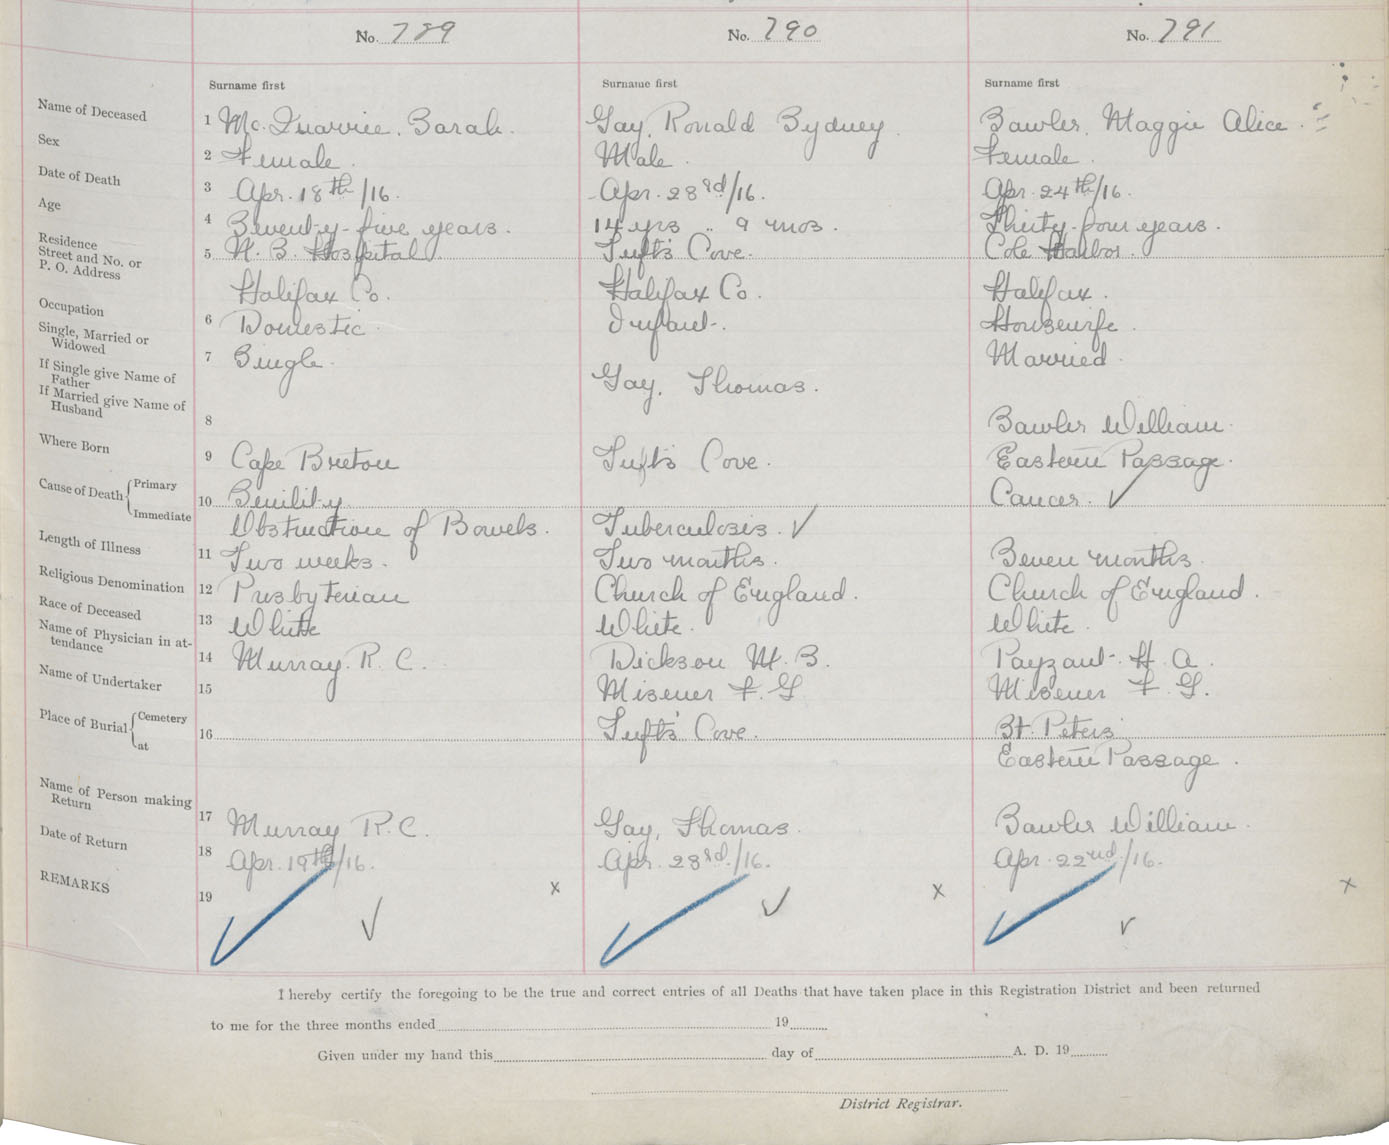 No. 789
No. 790
No. 791
Surname first
Surname first
Surname first
Name of Deceased
1 Mc. Quarrie. Sarah.
Gay, Ronald Sydney.
Bowler, Maggie Alice.
Sex
2 Female.
Male.
Female.
Date of Death
3 Apr. 18th/16.
Apr. 23rd/16.
Apr. 24th/16.
Age
4 Seventy-five years.
14 yrs .. 9 mos.
Thirty-four years.
Residence
Street and No. or
P. O. Address
5 N. S. Hospital.
Tuft's Cove.
Cole Harbor.
Halifax Co.
Halifax Co.
Halifax.
Occupation
6 Domestic.
Infant.
Housewife.
Single, Married or
Widowed
7 Single.
Married.
If Single give Name of
Father
Gay, Thomas.
If Married give Name of
Husband
8
Bowler William.
Where Born
9 Cape Breton
Tuft's Cove.
Eastern Passage.
Cause of Death Primary
10 Senility.
Cancer. ✓
Immediate
Obstruction of Bowels.
Tuberculosis. ✓
Length of Illness
11 Two weeks.
Two months.
Seven months.
Religious Denomination
12 Presbyterian
Church of England.
Church of England.
Race of Deceased
13 White
White.
White.
Name of Physician in at-
tendance
14 Murray. R. C.
Dickson M. S.
Payzant. H. A.
Name of Undertaker
15
Misener F. G
Misener F. G.
Place of Burial Cemetery
16
Tuft's Cove.
St. Peters'
at
Eastern Passage.
Name of Person making
Return
17 Murray R. C.
Gay, Thomas.
Bowler William.
Date of Return
18 Apr. 19th/16.
Apr. 23rd./16.
Apr. 22nd/16.
REMARKS
19
x
x
x
I hereby certify the foregoing to be the true and correct entries of all Deaths that have taken place in this Registration District and been returned
to me for the three months ended 19
Given under my hand this day of A. D. 19
District Registrar.